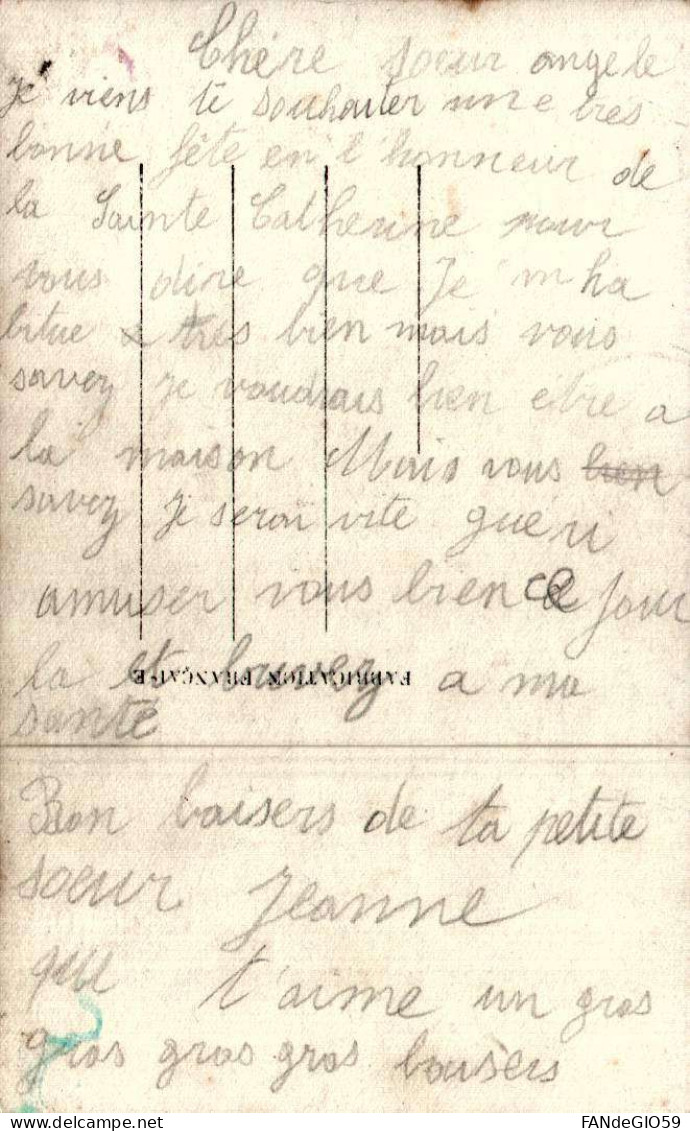 Chère soeur angele
Je viens te souhaiter une tres
bonne fête en l'honneur de
la Sainte Catherine pour
vous dire que Je m ha
bitue tres bien mais vous
savez Je voudrais bien etre a
la maison Mais vous bien
savez Je serai vite gueri
amuser vous bien ce jour
la et buvez a ma
FABRICATION FRANÇAISE
santé
Bon baisers de ta petite
soeur Jeanne
que t'aime un gros
gros gros gros baisers
FANdeGIO59